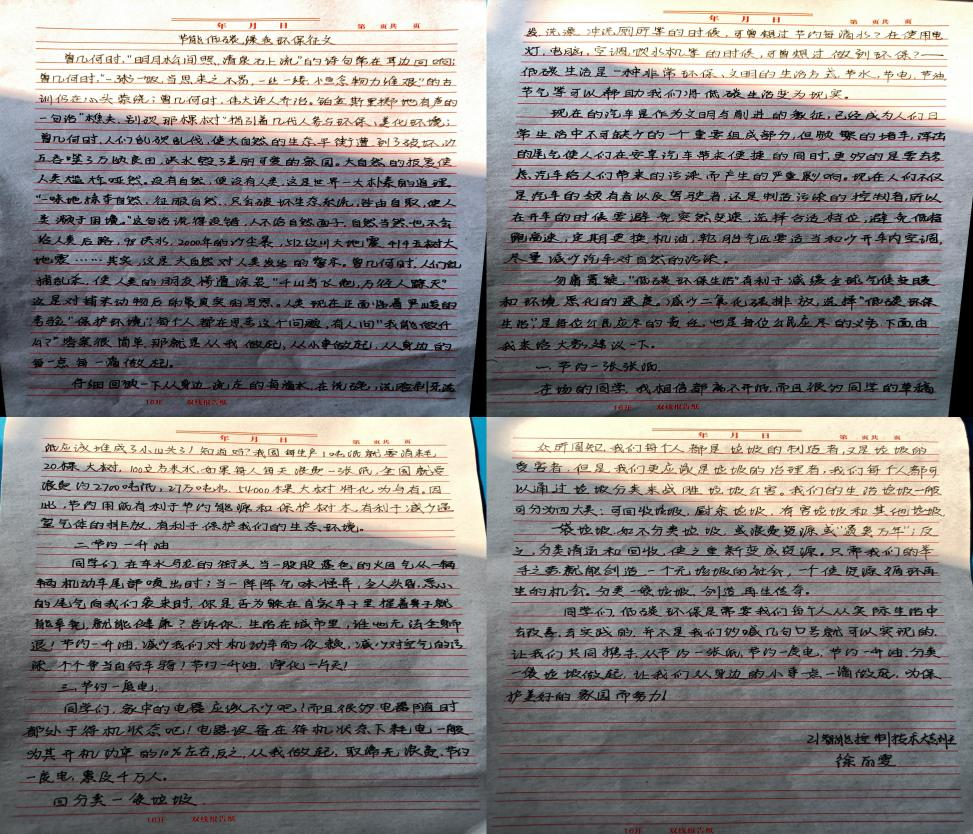 年 月 日
第 页共 页
节能低碳,绿我环保征文
曾几何时,"明月松间照,清泉石上流"的诗句常在耳边回响;
曾几何时,"一粥一饭,当思来之不易,一丝一缕,恒念物力维艰"的古
训仍在心头萦绕;曾几何时,伟大诗人乔治,铂金斯里掷地有声的
一句话"樵夫,别砍那棵树"指引着几代人参与环保,美化环境;
曾几何时,人们乱砍乱伐,使大自然的生态平衡遭到了破坏,沙
丘吞噬了万顷良田,洪水毁了美丽可爱的家园。大自然的报复使
人类尴尬哑然。没有自然,便没有人类,这是世界一大朴素的道理。
"一味地掠夺自然,征服自然,只会破坏生态系统,咎由自取,使人
类濒于困境。"这句话说得没错,人不给自然面子,自然当然也不会
给人类后路,98洪水,2000年的沙尘暴,512汶川大地震 414玉树大
地震……其实,这是大自然对人类发出的警示。曾几何时,人们乱
捕乱杀,使人类的朋友惨遭涂炭"千山鸟飞绝,万径人踪灭"
这是对捕杀动物后的最真实的写照。人类现在正面临着严峻的
考验"保护环境";每个人都在思考这个问题,有人问"我能做什
么?"答案很简单,那就是从我做起,从小事做起,从身边的
每一点每一滴做起。
仔细回顾一下从身边流去的每滴水,在洗碗,洗脸刷牙洗
16开 双线报告纸
发,洗澡,冲洗厕所等的时候,可曾想过节约每滴水?在使用电
灯,电脑,空调,饮水机等的时候,可曾想过做到环保?——
低碳生活是一种非常环保、文明的生活方式,节水,节电,节油
节气等可以帮助我们将低碳生活变为现实。
现在的汽车是作为文明与前进的象征,已经成为人们日
常生活中不可缺少的一个重要组成部分,但频繁的堵车,浑浊
的尾气使人们在安享汽车带来便捷的同时,更多的是要去考
虑汽车给人们带来的污染而产生的严重影响。现在人们不仅
是汽车的拥有者以及驾驶者,还是制造污染的控制者,所以
在开车的时候要避免突然变速,选择合适档位,避免低档
跑高速,定期更换机油,轮胎气压要适当和少开车内空调,
尽量减少汽车对自然的污染。
勿庸置疑,"低碳环保生活"有利于减缓全球气候变暖
和环境恶化的速度,减少二氧化碳排放,选择"低碳环保
生活"是每位公民应尽的责任,也是每位公民应尽的义务,下面,由
我来给大家建议一下。
一.节约一张张纸
在场的同学,我相信都离不开纸,而且很多同学的草稿
16开 双线报告纸
年 月 日
第 页共 页
纸应该堆成了小山头了!知道吗?我国每生产1吨纸就要消耗
20棵大树,100立方米水,如果每人每天浪费一张纸,全国就要
浪费约2700吨纸,27万吨水,54000棵大树将化为乌有。因
此,节约用纸有利于节约能源和保护树木,有利于减少温
室气体的排放,有利于保护我们的生态环境。
二.节约一升油
同学们,在车水马龙的街头,当一股股蓝色的烟气从一辆
辆机动车尾部喷出时;当一阵阵气味怪异,令人头昏,恶心
的尾气向我们袭来时,你是否为躲在自家车子里捏着鼻子就
能幸免,就能健康?告诉你,生活在城市里,谁也无法全身而
退!节约一升油,减少我们对机动车的依赖,减少对空气的污
染,个个争当自行车骑!节约一升油,净化一片天!
三.节约一度电.
同学们,家中的电器应该不少吧!而且很多电器随时
都处于待机状态吧!电器设备在待机状态下耗电一般
为其开机功率的10%左右,反之,从我做起,取缔无浪费,节约
一度电,惠及千万人。
四分类一袋垃圾
16开 双线报告纸
年 月 日
第 页共 页
众所周知,我们每个人都是垃圾的制造者,又是垃圾的
受害者,但是,我们更应该是垃圾的治理者,我们每个人都可
以通过垃圾分类来战胜垃圾公害。我们的生活垃圾一般
可分为四大类:可回收垃圾,厨余垃圾,有害垃圾和其他垃圾.
一袋垃圾,如不分类垃圾,或浪费资源或"遗臭万年";反
之,分类清洁和回收,使之重新变成资源。只需我们的举
手之劳就能创造一个无垃圾的社会,一个使资源循环再
生的机会,分类一袋垃圾,创造再生传奇。
同学们,低碳环保是需要我们每个人从实际生活中
去改善,去实践的,并不是我们吵喊几句口号就可以实现的,
让我们共同携手,从节约一张纸,节约一度电,节约一升油,分类
一袋垃圾做起,让我们从身边的小事点一滴做起,为保
护美好的家园而努力!
21智能控制技术大结班
徐丽雯
16开 双线报告纸